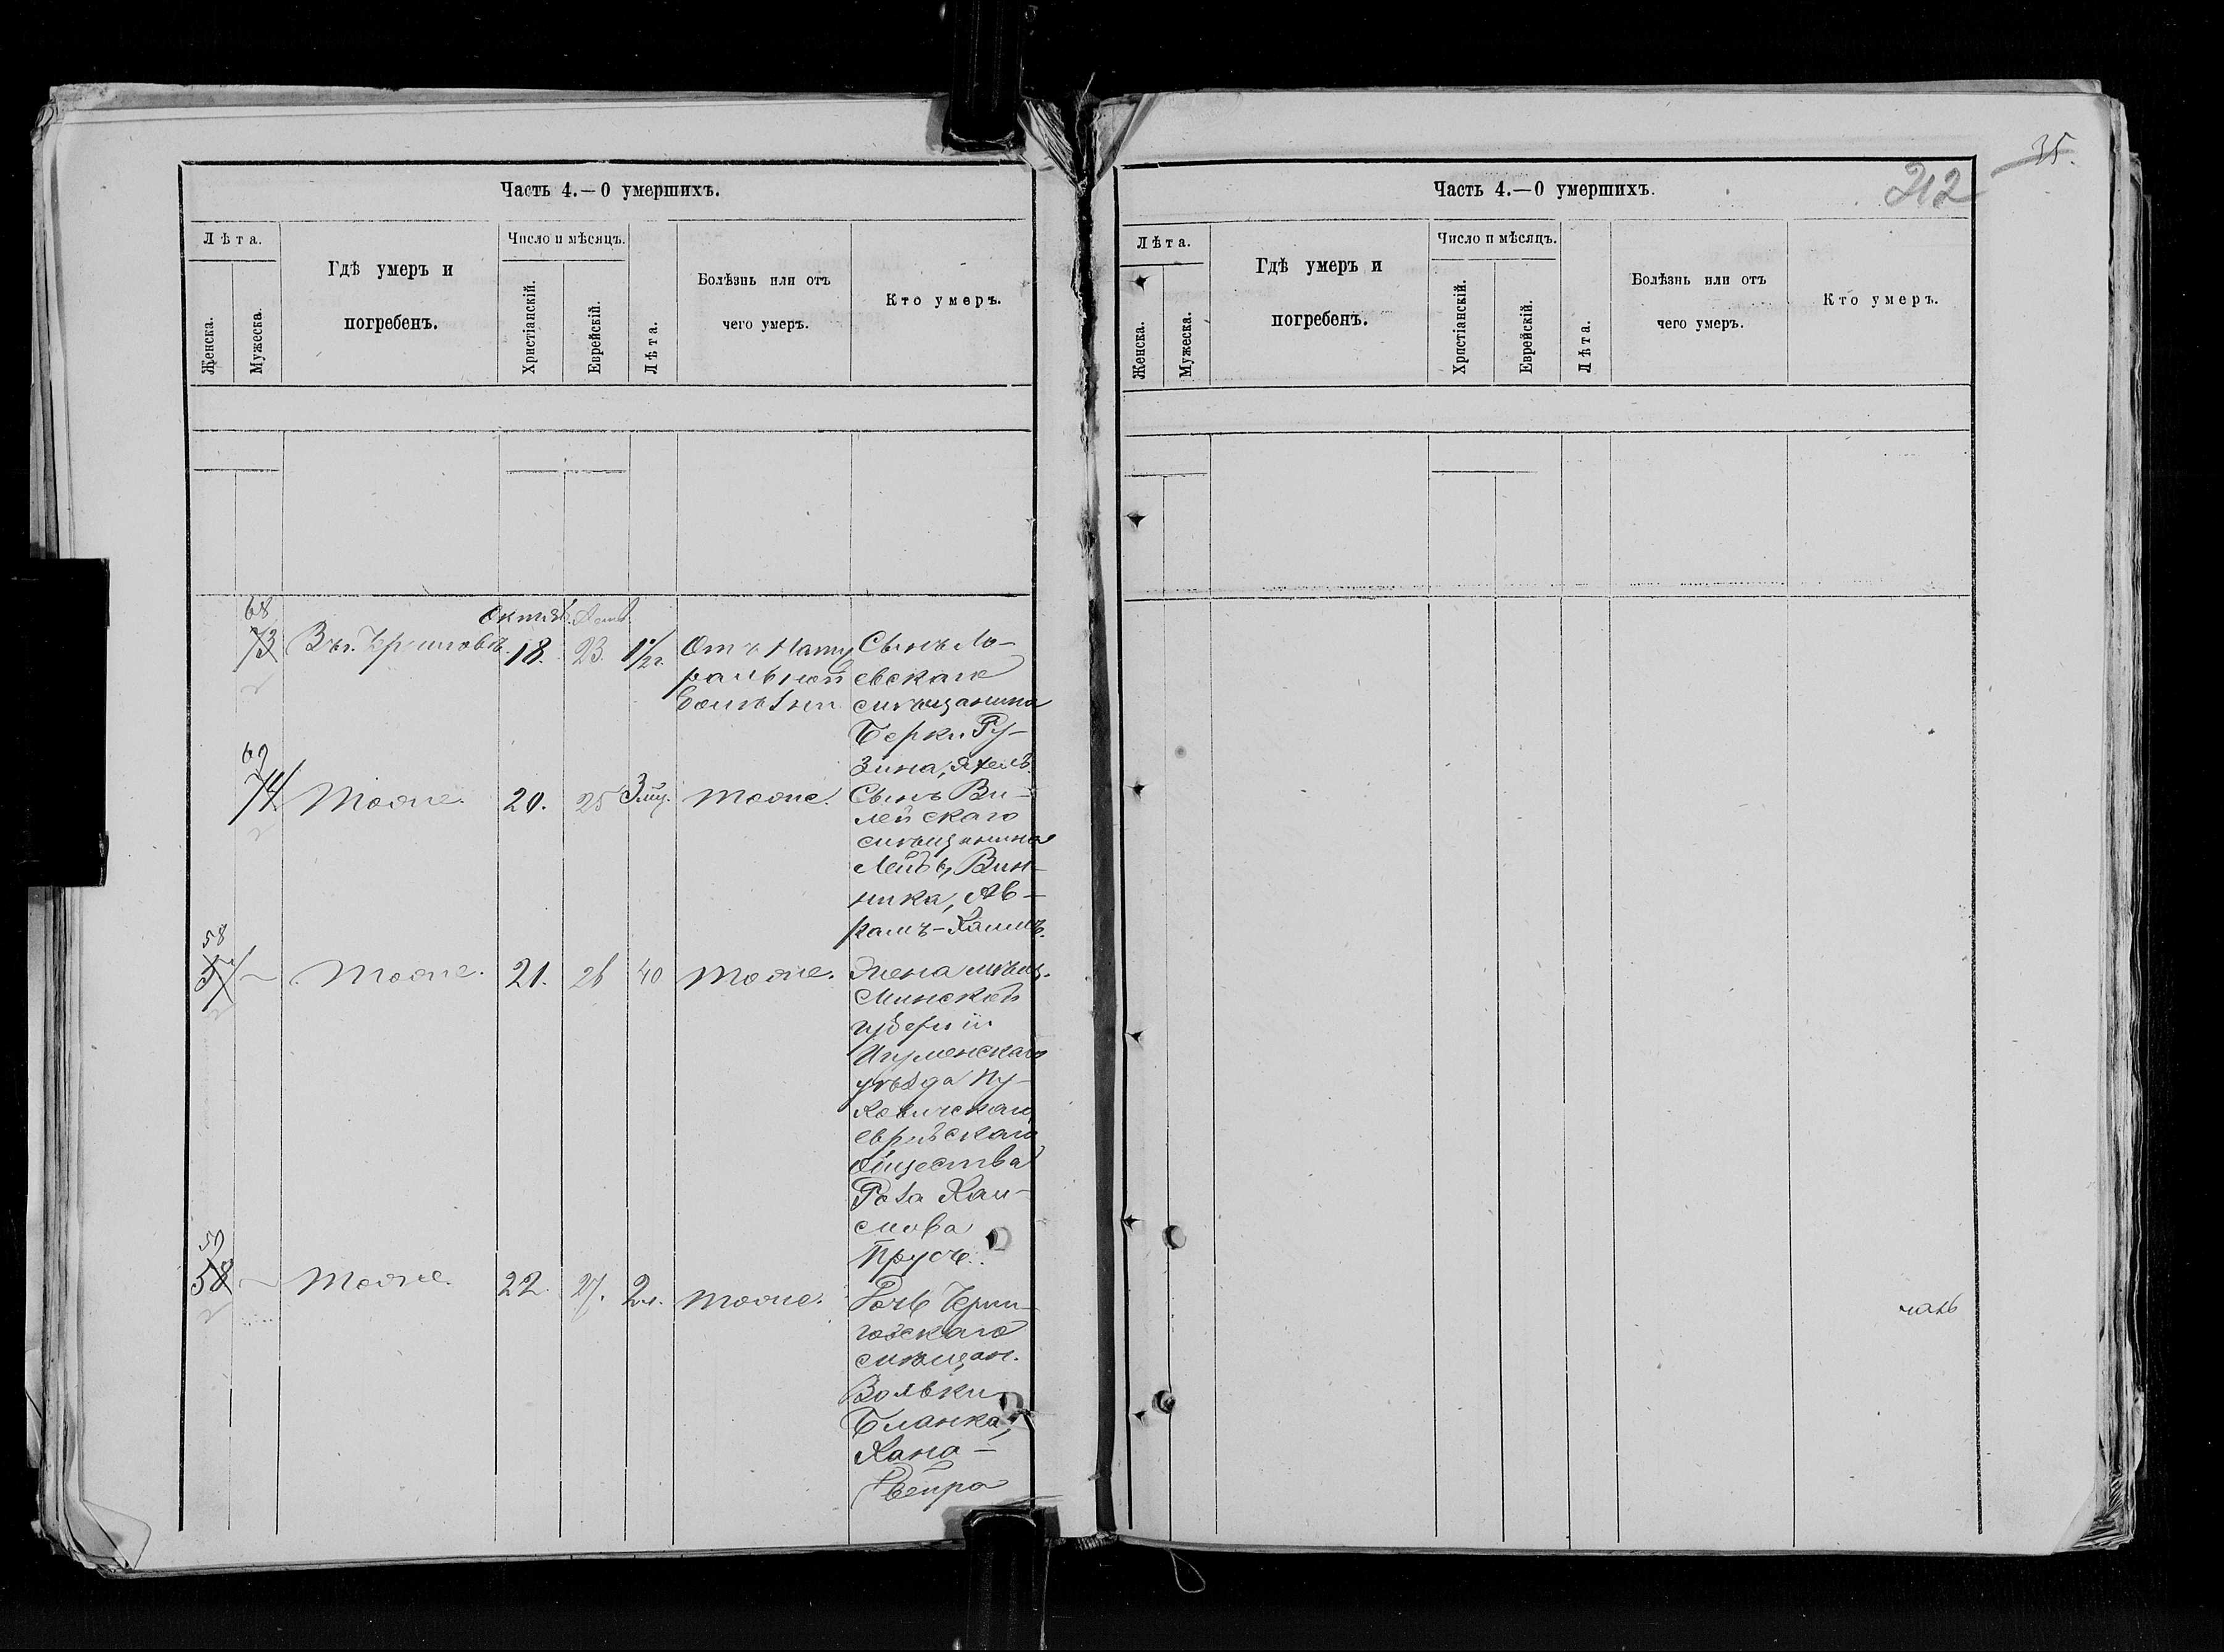 Часть 4.—О умершихъ.
Лѣта.
Женска.
Мужеска.
Гдѣ умеръ и
погребенъ.
Число и мѣсяцъ.
Христіанскій.
Еврейскій.
Лѣта.
Болѣзнь или отъ
чего умеръ.
Кто умеръ.
68
73
Въ г. Черниговѣ.
Октяб.
18.
23.
1 1/2 г.
Отъ Нату
ральной
болѣзни
Сынъ Ло-
евскаго
мѣщанина
Берки Ру-
зина,
69
74
Тоже.
20.
25
3 мц.
Тоже.
Сынъ Ви-
лейскаго
мѣщанина
Лейбы Вин-
ника, Ав-
рамъ-Хаимъ.
58
57
—
Тоже.
21.
26
40
Тоже.
Жена мѣщ.
Минской
губерніи
Игуменскаго
уѣзда Пу-
ховичскаго
еврейскаго
общества
Роза Хаи-
мова
Прусъ.
59
58
—
Тоже.
22.
27.
2 г.
Тоже.
Дочь Черни-
говскаго
мѣщан.
Вольки
Бланка,
Хана-
Двейра
35.
212
Часть 4.—О умершихъ.
Лѣта.
Женска.
Мужеска.
Гдѣ умеръ и
погребенъ.
Число и мѣсяцъ.
Христіанскій.
Еврейскій.
Лѣта.
Болѣзнь или отъ
чего умеръ.
Кто умеръ.